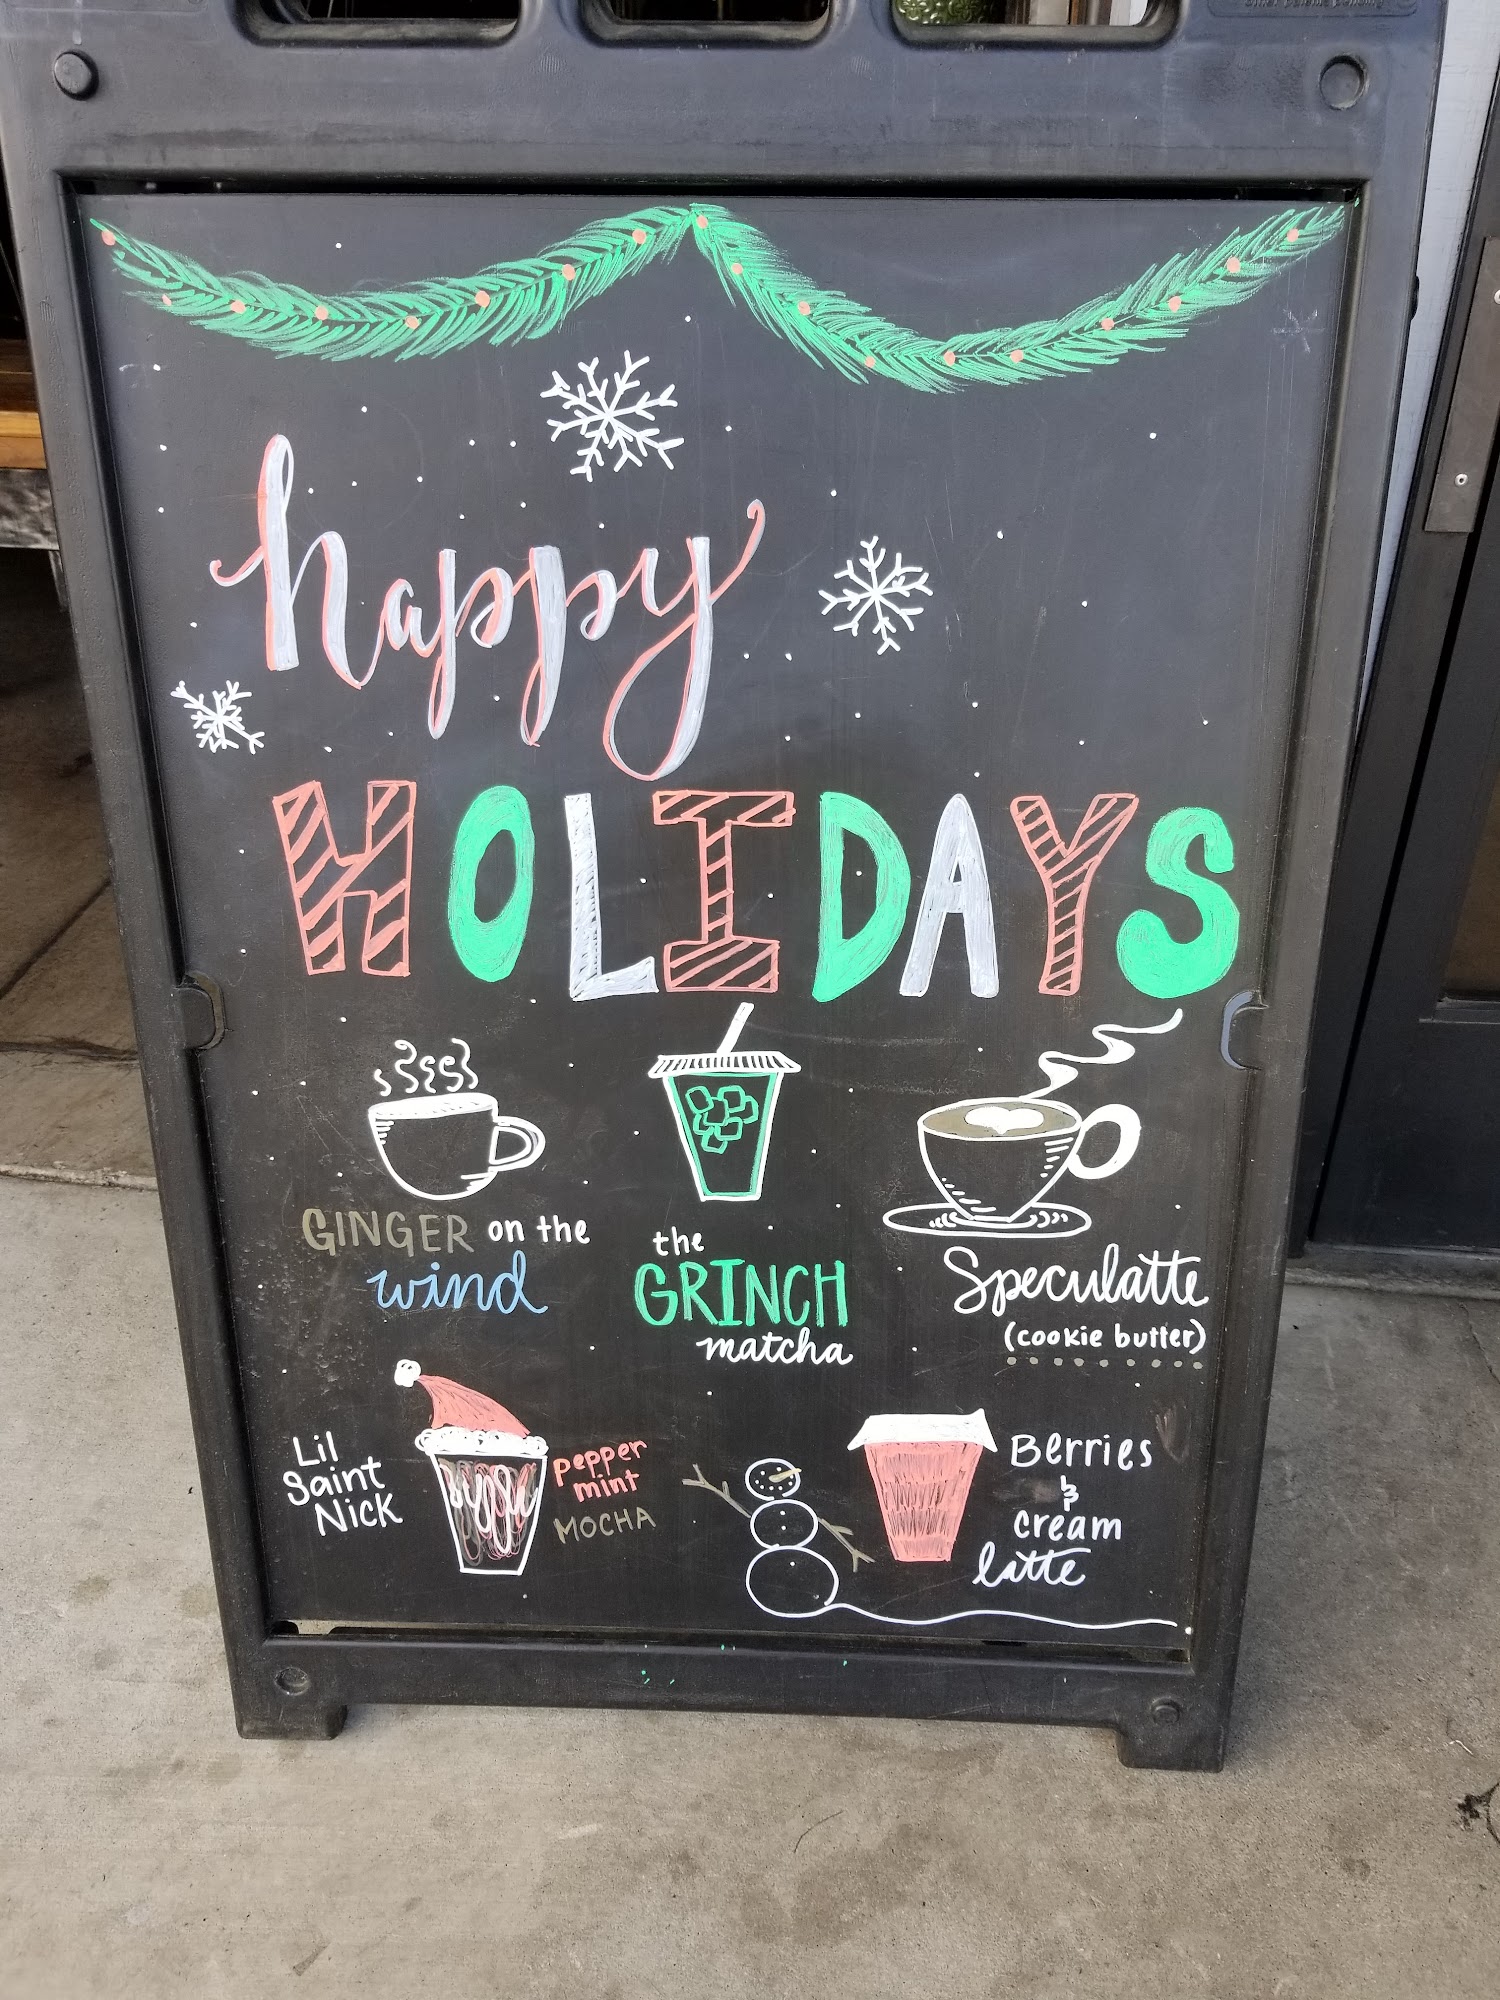 happy
HOLIDAYS
GINGER on the
wind
the
GRINCH
matcha
Speculatte
(cookie butter)
Lil
Saint
Nick
pepper
mint
MOCHA
Berries
&
cream
latte